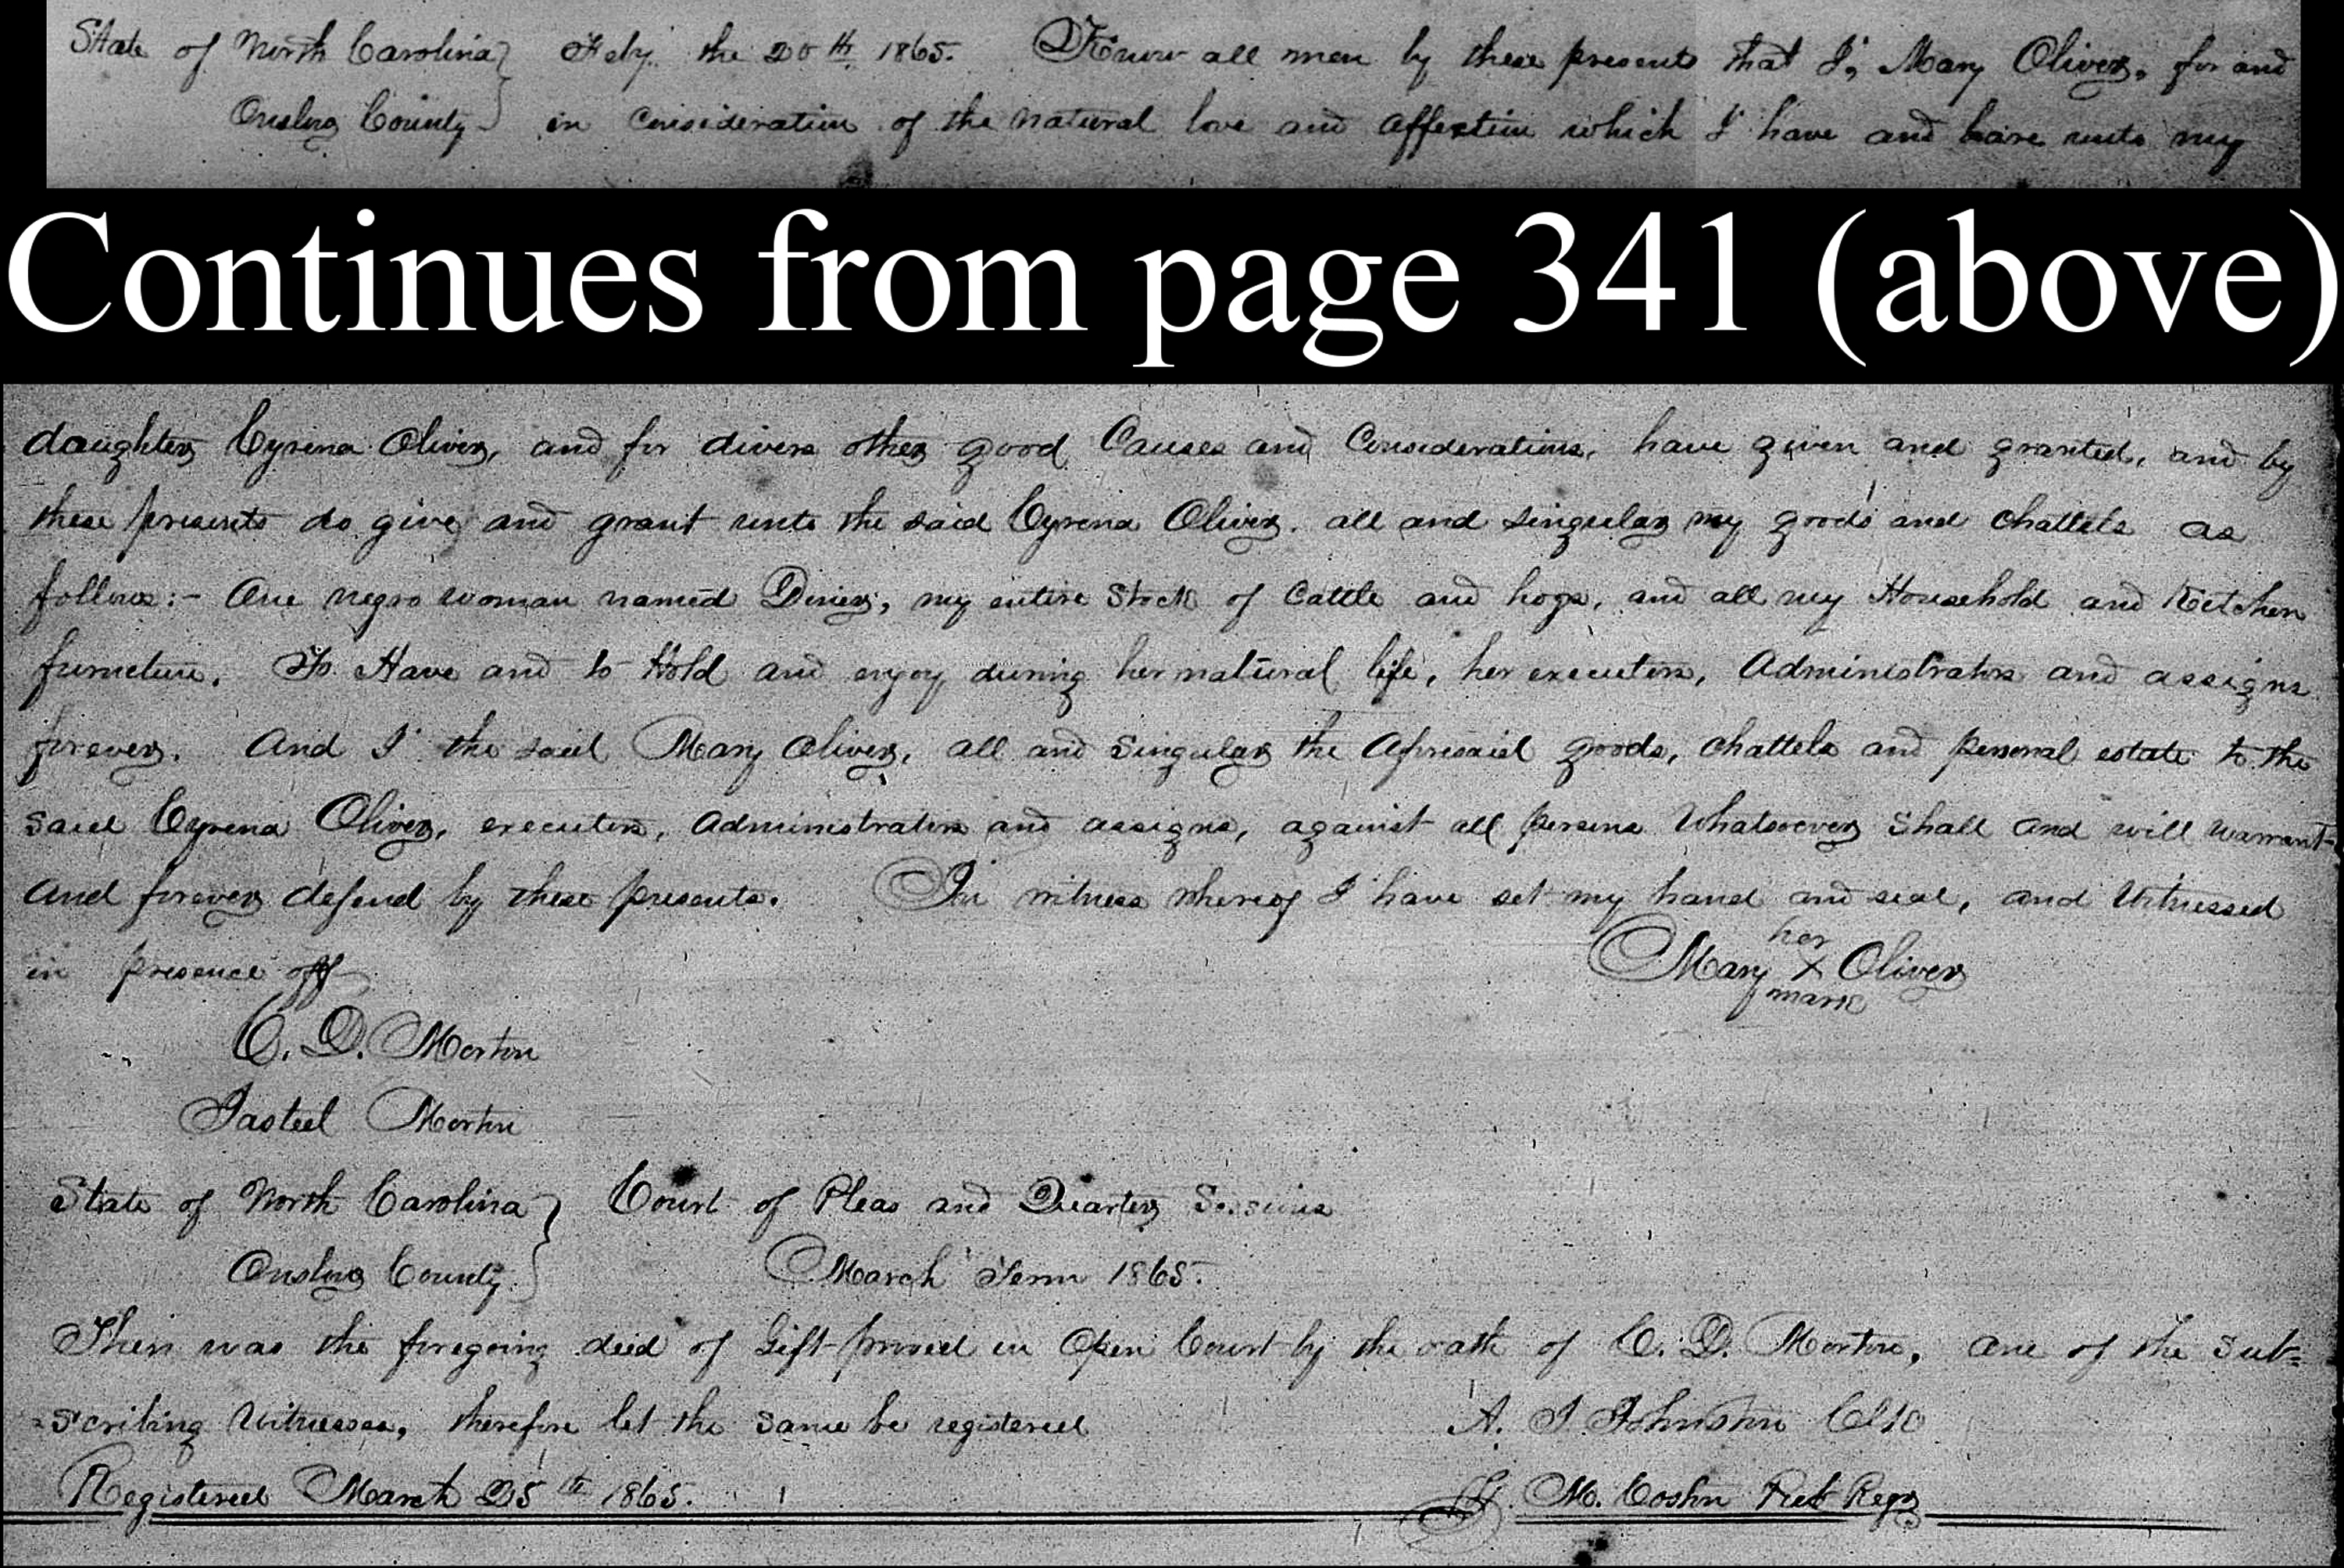 State of North Carolina } Feby. the 20th 1865. Know all men by these presents that I, Mary Oliver, for and
Onslow County } in consideration of the natural love and affection which I have and bare unto my
Continues from page 341 (above)
daughter Cyrena Oliver, and for divers other good Causes and Considerations, have given and granted, and by
these presents do give and grant unto the said Cyrena Oliver. all and singular my goods and chattels as
follows:- One negro woman named my entire Stock of Cattle and hogs, and all my Household and Kitchen
furneture. To Have and to Hold and enjoy during her natural life, her executors, Administrators and assigns
forever. And I the said Mary Oliver, all and Singular the Aforesaid goods, chattels and personal estate to the
said Cyrena Oliver, executors, Administrators and assigns, against all persons Whatsoever Shall and will warrant
And forever defend by these presents. In witness whereof I have set my hand and seal, and Witnessed
in presence off
her
Mary X Oliver
mark
C. D. Morton
Morton
State of North Carolina } Court of Pleas and Quarter Sessions
Onslow County. } March Term 1865.
Then was the foregoing deed of Gift proved in Open Court by the oath of C. D. Morton, One of the Sub=
=Scribing Witnesses, therefore let the Same be registered
A. J. Johnston Clk
Registered March 25th 1865.
M. Coston Pub Regr